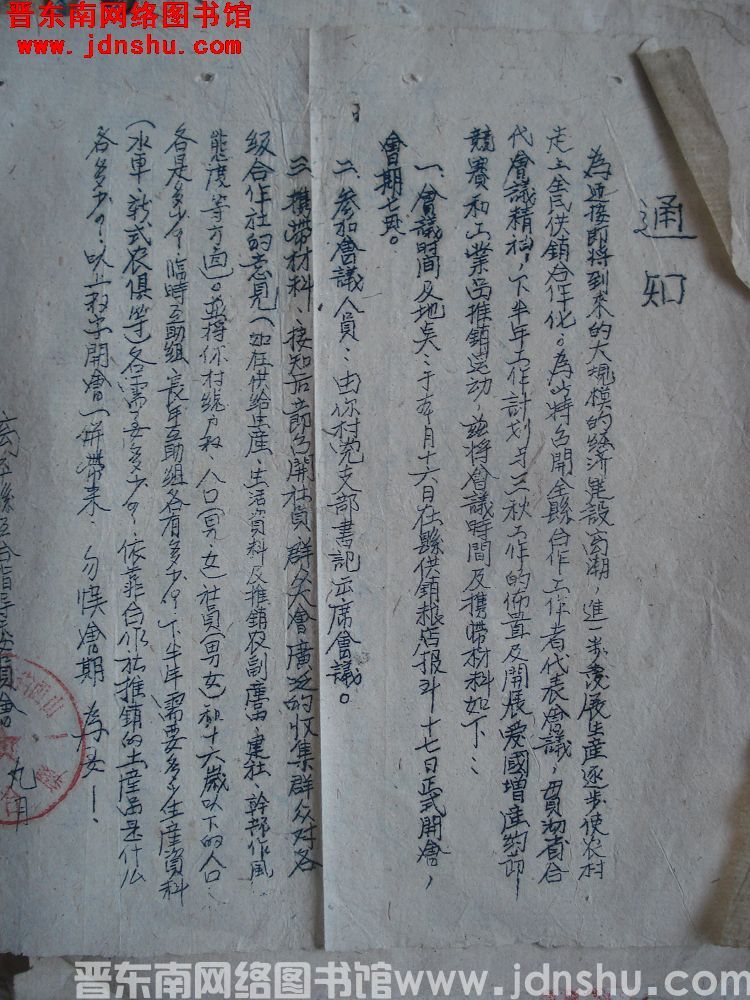 晋东南网络图书馆
www.jdnshu.com
通知
為迎接即将到來的大規模的経済建設高潮，進一步發展生産逐步使农村
走上全民供銷合作化。為此特召開全縣合作工作者代表會議，貫彻省合
代會議精神，下半年工作計划与三秋工作的佈置及開展爱國増産節約
競賽和工業品推銷运动，茲将會議時间及携带材料如下：
一、會議時间及地奌：于本月十六日在縣供銷粮店报到十七日正式開會，
會期七天。
二、参加會議人員：由你村党支部書記出席會議。
三、携带材料：接知后立即召開社員、群众大會廣泛的收集群众对各
級合作社的意見（如在供给生産、生活資料及推銷农副産品、建社、幹部作風
態度等方面）。並将你村總户数 人口（男、女）社員（男女）和十六歲以下的人口、
各是多少？臨時互助組、長年互助組各有多少？下半年需要多少生産資料
（水車、新式农俱等）各需要多少？依靠合作社推銷的土産品是什么
各多少？以上数字開會一併带来、勿悞會期 為要！
高平縣 合 指导委員會
九月
晋东南网络图书馆www.jdnshu.com